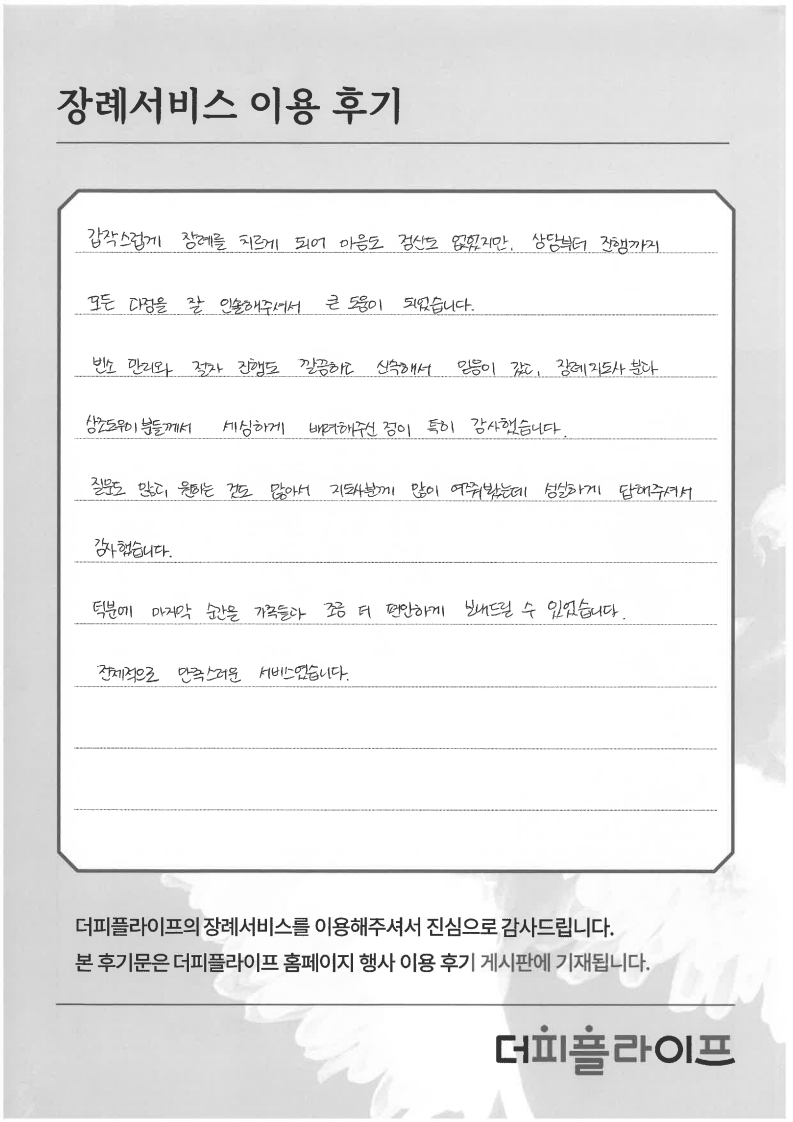 장례서비스 이용 후기
갑작스럽게 장례를 치르게 되어 마음도 정신도 없었지만, 상담부터 진행까지
모든 과정을 잘 인솔해주셔서 큰 도움이 되었습니다.
빈소 관리와 절차 진행도 깔끔하고 신속해서 믿음이 갔고, 장례지도사 분과
상조도우미 분들께서 세심하게 배려해주신 점이 특히 감사했습니다.
질문도 많고, 원하는 것도 많아서 지도사분께 많이 여쭤봤는데 성실하게 답해주셔서
감사했습니다.
덕분에 마지막 순간을 가족들과 조금 더 편안하게 보내드릴 수 있었습니다.
전체적으로 만족스러운 서비스였습니다.
더피플라이프의 장례서비스를 이용해주셔서 진심으로 감사드립니다.
본 후기문은 더피플라이프 홈페이지 행사 이용 후기 게시판에 기재됩니다.
더피플라이프